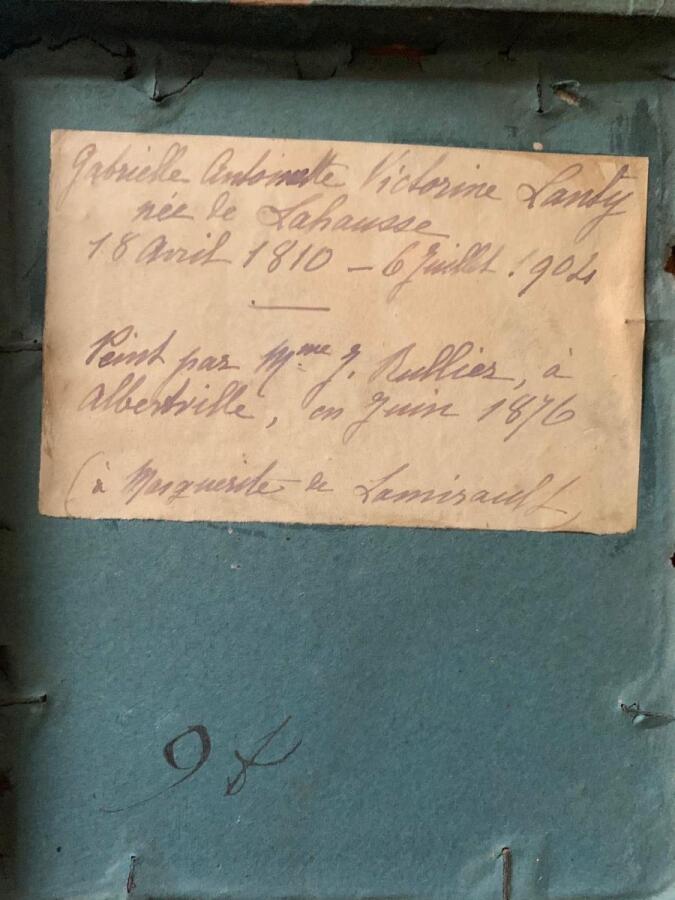 Gabrielle Antoinette Victorine Lanty
née de Lahausse
18 Avril 1810 – 6 Juillet 1904
Peint par Mme J. Rullier, à
Albertville, en Juin 1876
(à Marguerite de Lamirault)
9 f